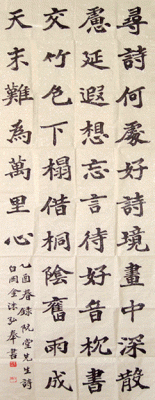 尋詩何處好詩境畫中深散
慮延遐想忘言待好音枕書
交竹色下榻借桐陰舊雨成
天末難為萬里心
乙酉春錄阮堂先生詩